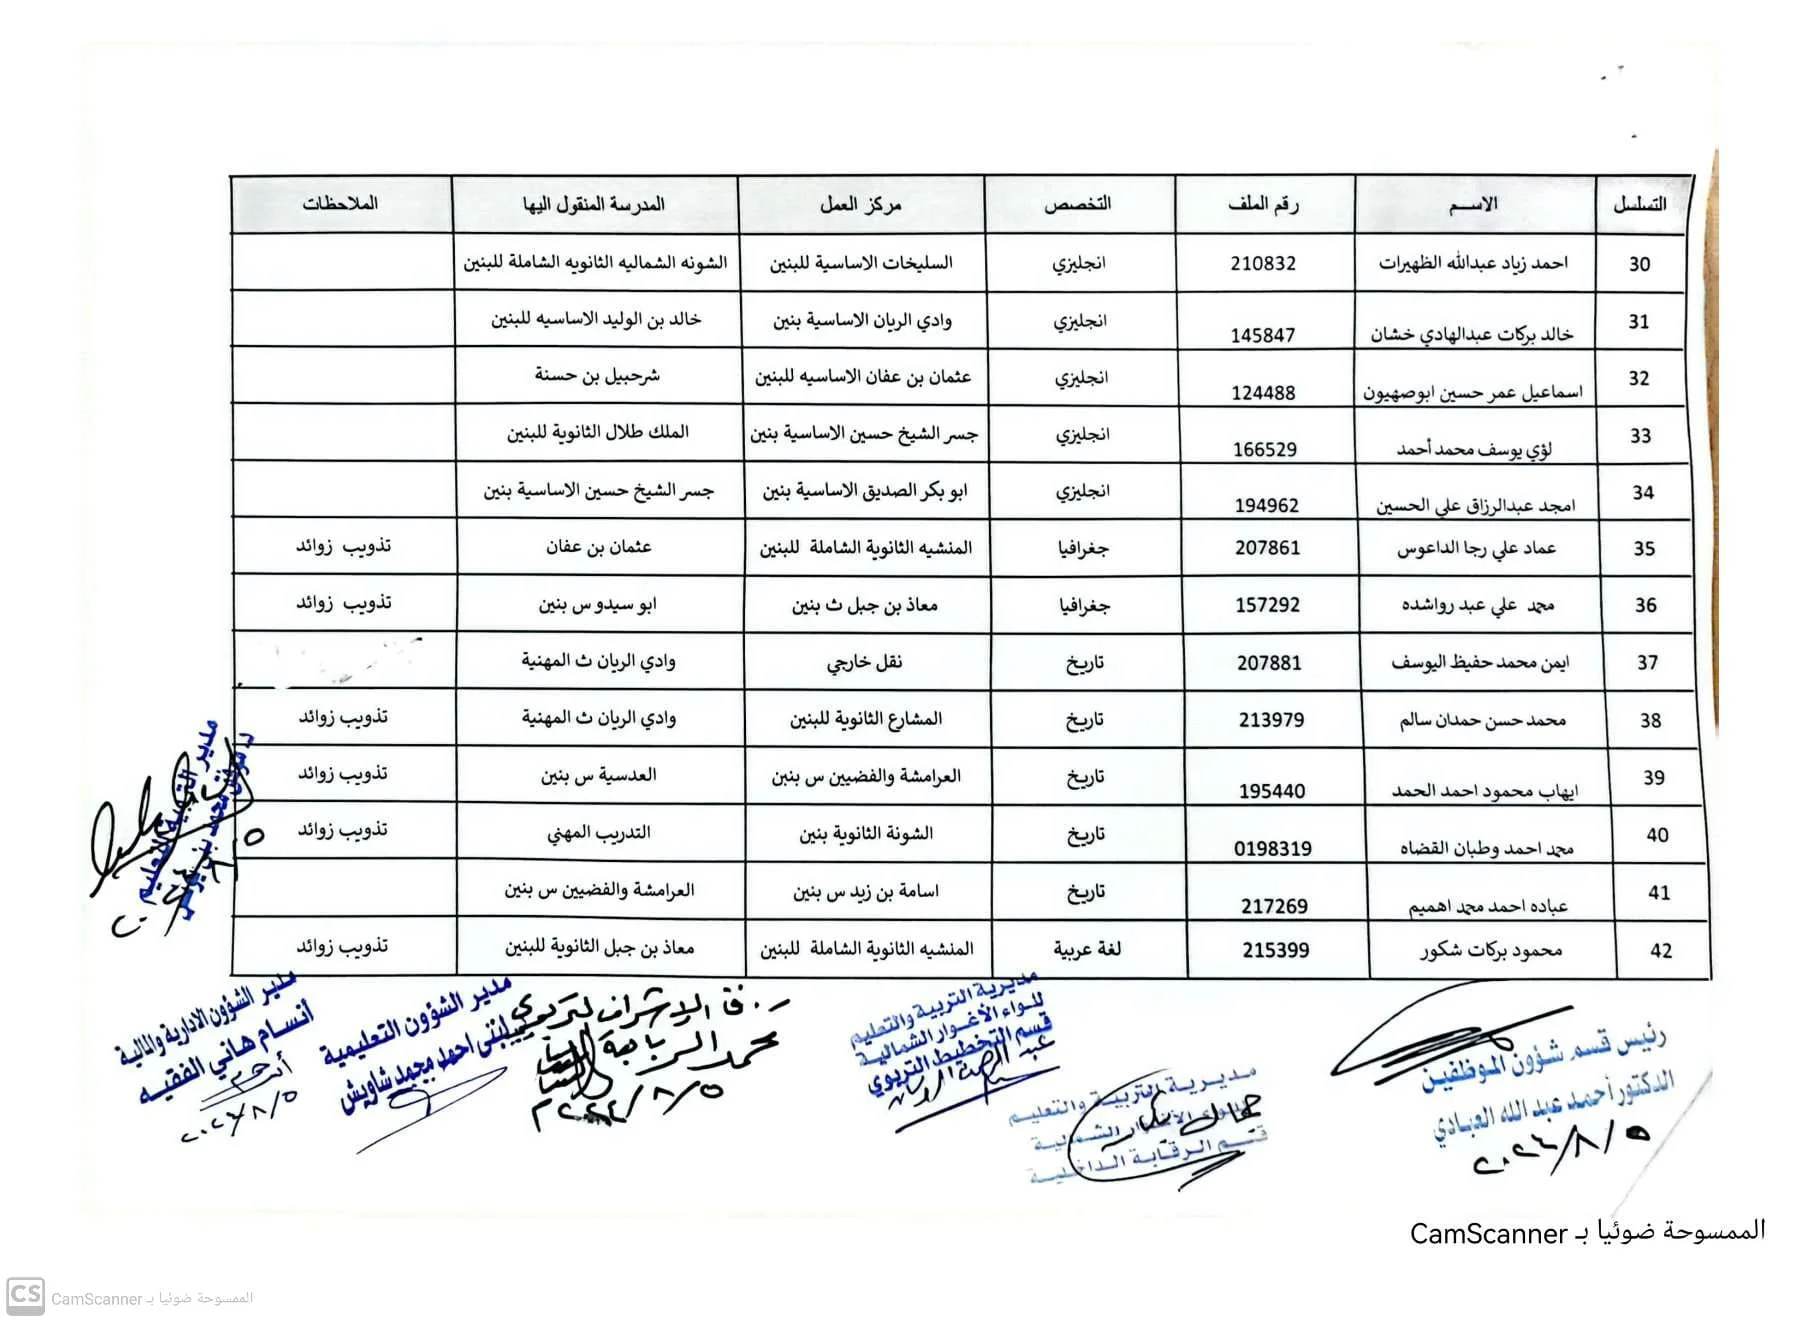 التسلسل الاســم رقم الملف التخصص مركز العمل المدرسة المنقول اليها الملاحظات
30 احمد زياد عبدالله الظهيرات 210832 انجليزي السليخات الاساسية للبنين الشونه الشماليه الثانويه الشاملة للبنين
31 خالد بركات عبدالهادي خشان 145847 انجليزي وادي الريان الاساسية بنين خالد بن الوليد الاساسيه للبنين
32 اسماعيل عمر حسين ابوصهيون 124488 انجليزي عثمان بن عفان الاساسيه للبنين شرحبيل بن حسنة
33 لؤي يوسف محمد أحمد 166529 انجليزي جسر الشيخ حسين الاساسية بنين الملك طلال الثانوية للبنين
34 امجد عبدالرزاق علي الحسين 194962 انجليزي ابو بكر الصديق الاساسية بنين جسر الشيخ حسين الاساسية بنين
35 عماد علي رجا الداعوس 207861 جغرافيا المنشيه الثانوية الشاملة للبنين عثمان بن عفان تذويب زوائد
36 محمد علي عبد رواشده 157292 جغرافيا معاذ بن جبل ث بنين ابو سيدو س بنين تذويب زوائد
37 ايمن محمد حفيظ اليوسف 207881 تاريخ نقل خارجي وادي الريان ث المهنية
38 محمد حسن حمدان سالم 213979 تاريخ المشارع الثانوية للبنين وادي الريان ث المهنية تذويب زوائد
39 ايهاب محمود احمد الحمد 195440 تاريخ العرامشة والفضيين س بنين العدسية س بنين تذويب زوائد
40 محمد احمد وطبان القضاه 0198319 تاريخ الشونة الثانوية بنين التدريب المهني تذويب زوائد
41 عباده احمد محمد اهميم 217269 تاريخ اسامة بن زيد س بنين العرامشة والفضيين س بنين
42 محمود بركات شكور 215399 لغة عربية المنشيه الثانوية الشاملة للبنين معاذ بن جبل الثانوية للبنين تذويب زوائد
رئيس قسم شؤون الموظفين
الدكتور أحمد عبد الله العبادي
٢٠٢٤/٨/٥
مديرية التربية والتعليم
للواء الأغوار الشمالية
قسم الرقابة الداخلية
مديرية التربية والتعليم
للواء الأغوار الشمالية
قسم التخطيط التربوي
ر.ق الإشراف التربوي
محمد الربابعة
٢٠٢٤/٨/٥
مدير الشؤون التعليمية
لبنى احمد محمد شاويش
مدير الشؤون الادارية والمالية
أنسام هاني الفقيه
٢٠٢٤/٨/٥
مدير التربية والتعليم
الممسوحة ضوئيا بـ CamScanner
CS الممسوحة ضوئيا بـ CamScanner